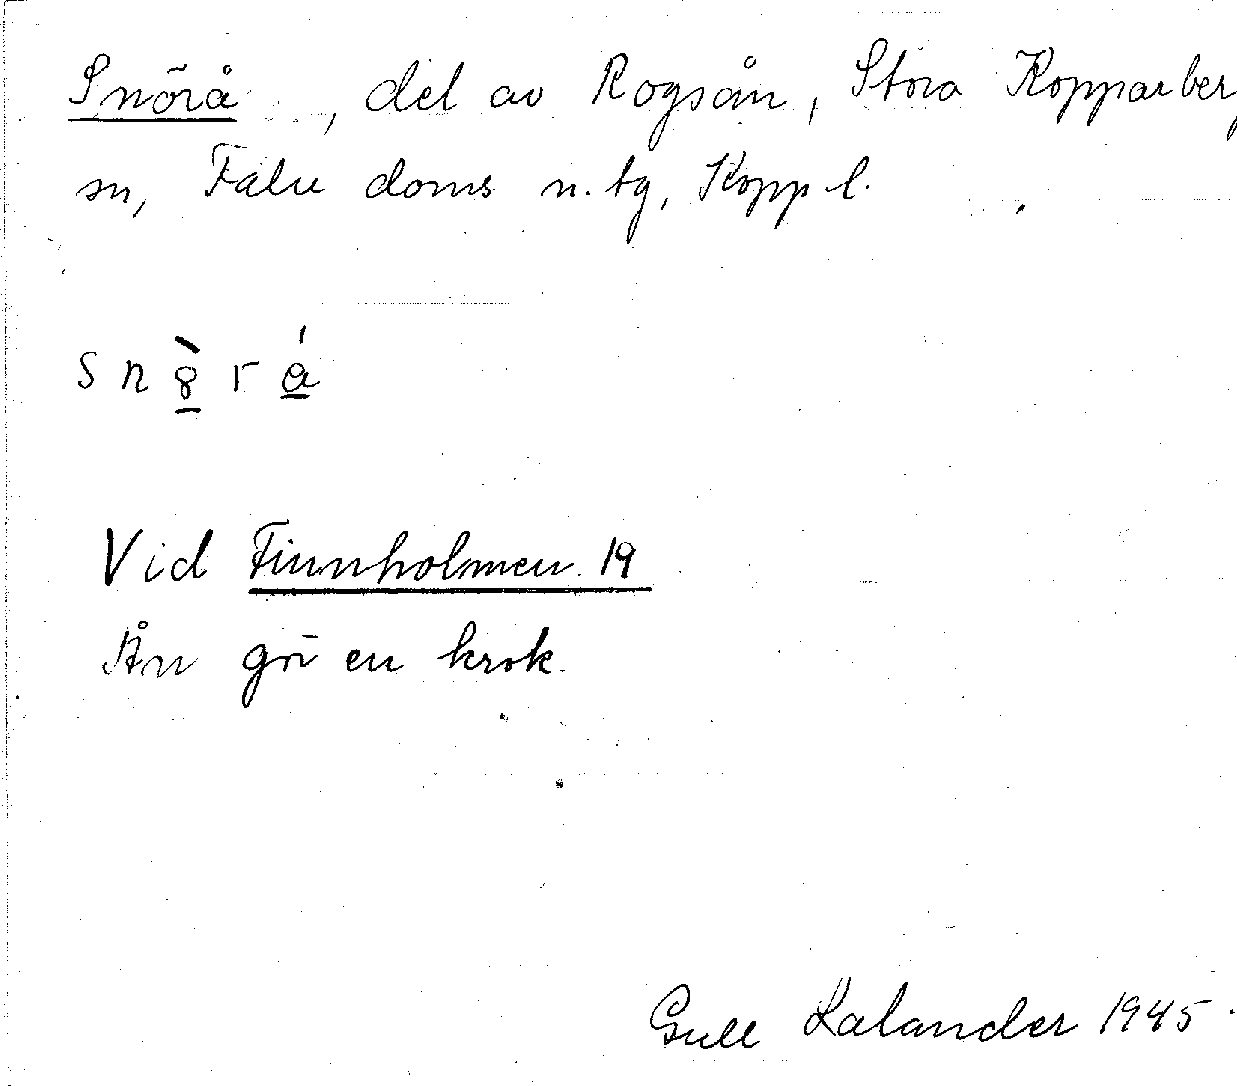 Snörå, del av Rogsån, Stora Kopparber
sn, Falu doms n. tg, Kopp l.
s n ȣ̀ r ǻ
Vid Finnholmen 19
Ån gör en krok.
Gull Kalander 1945.